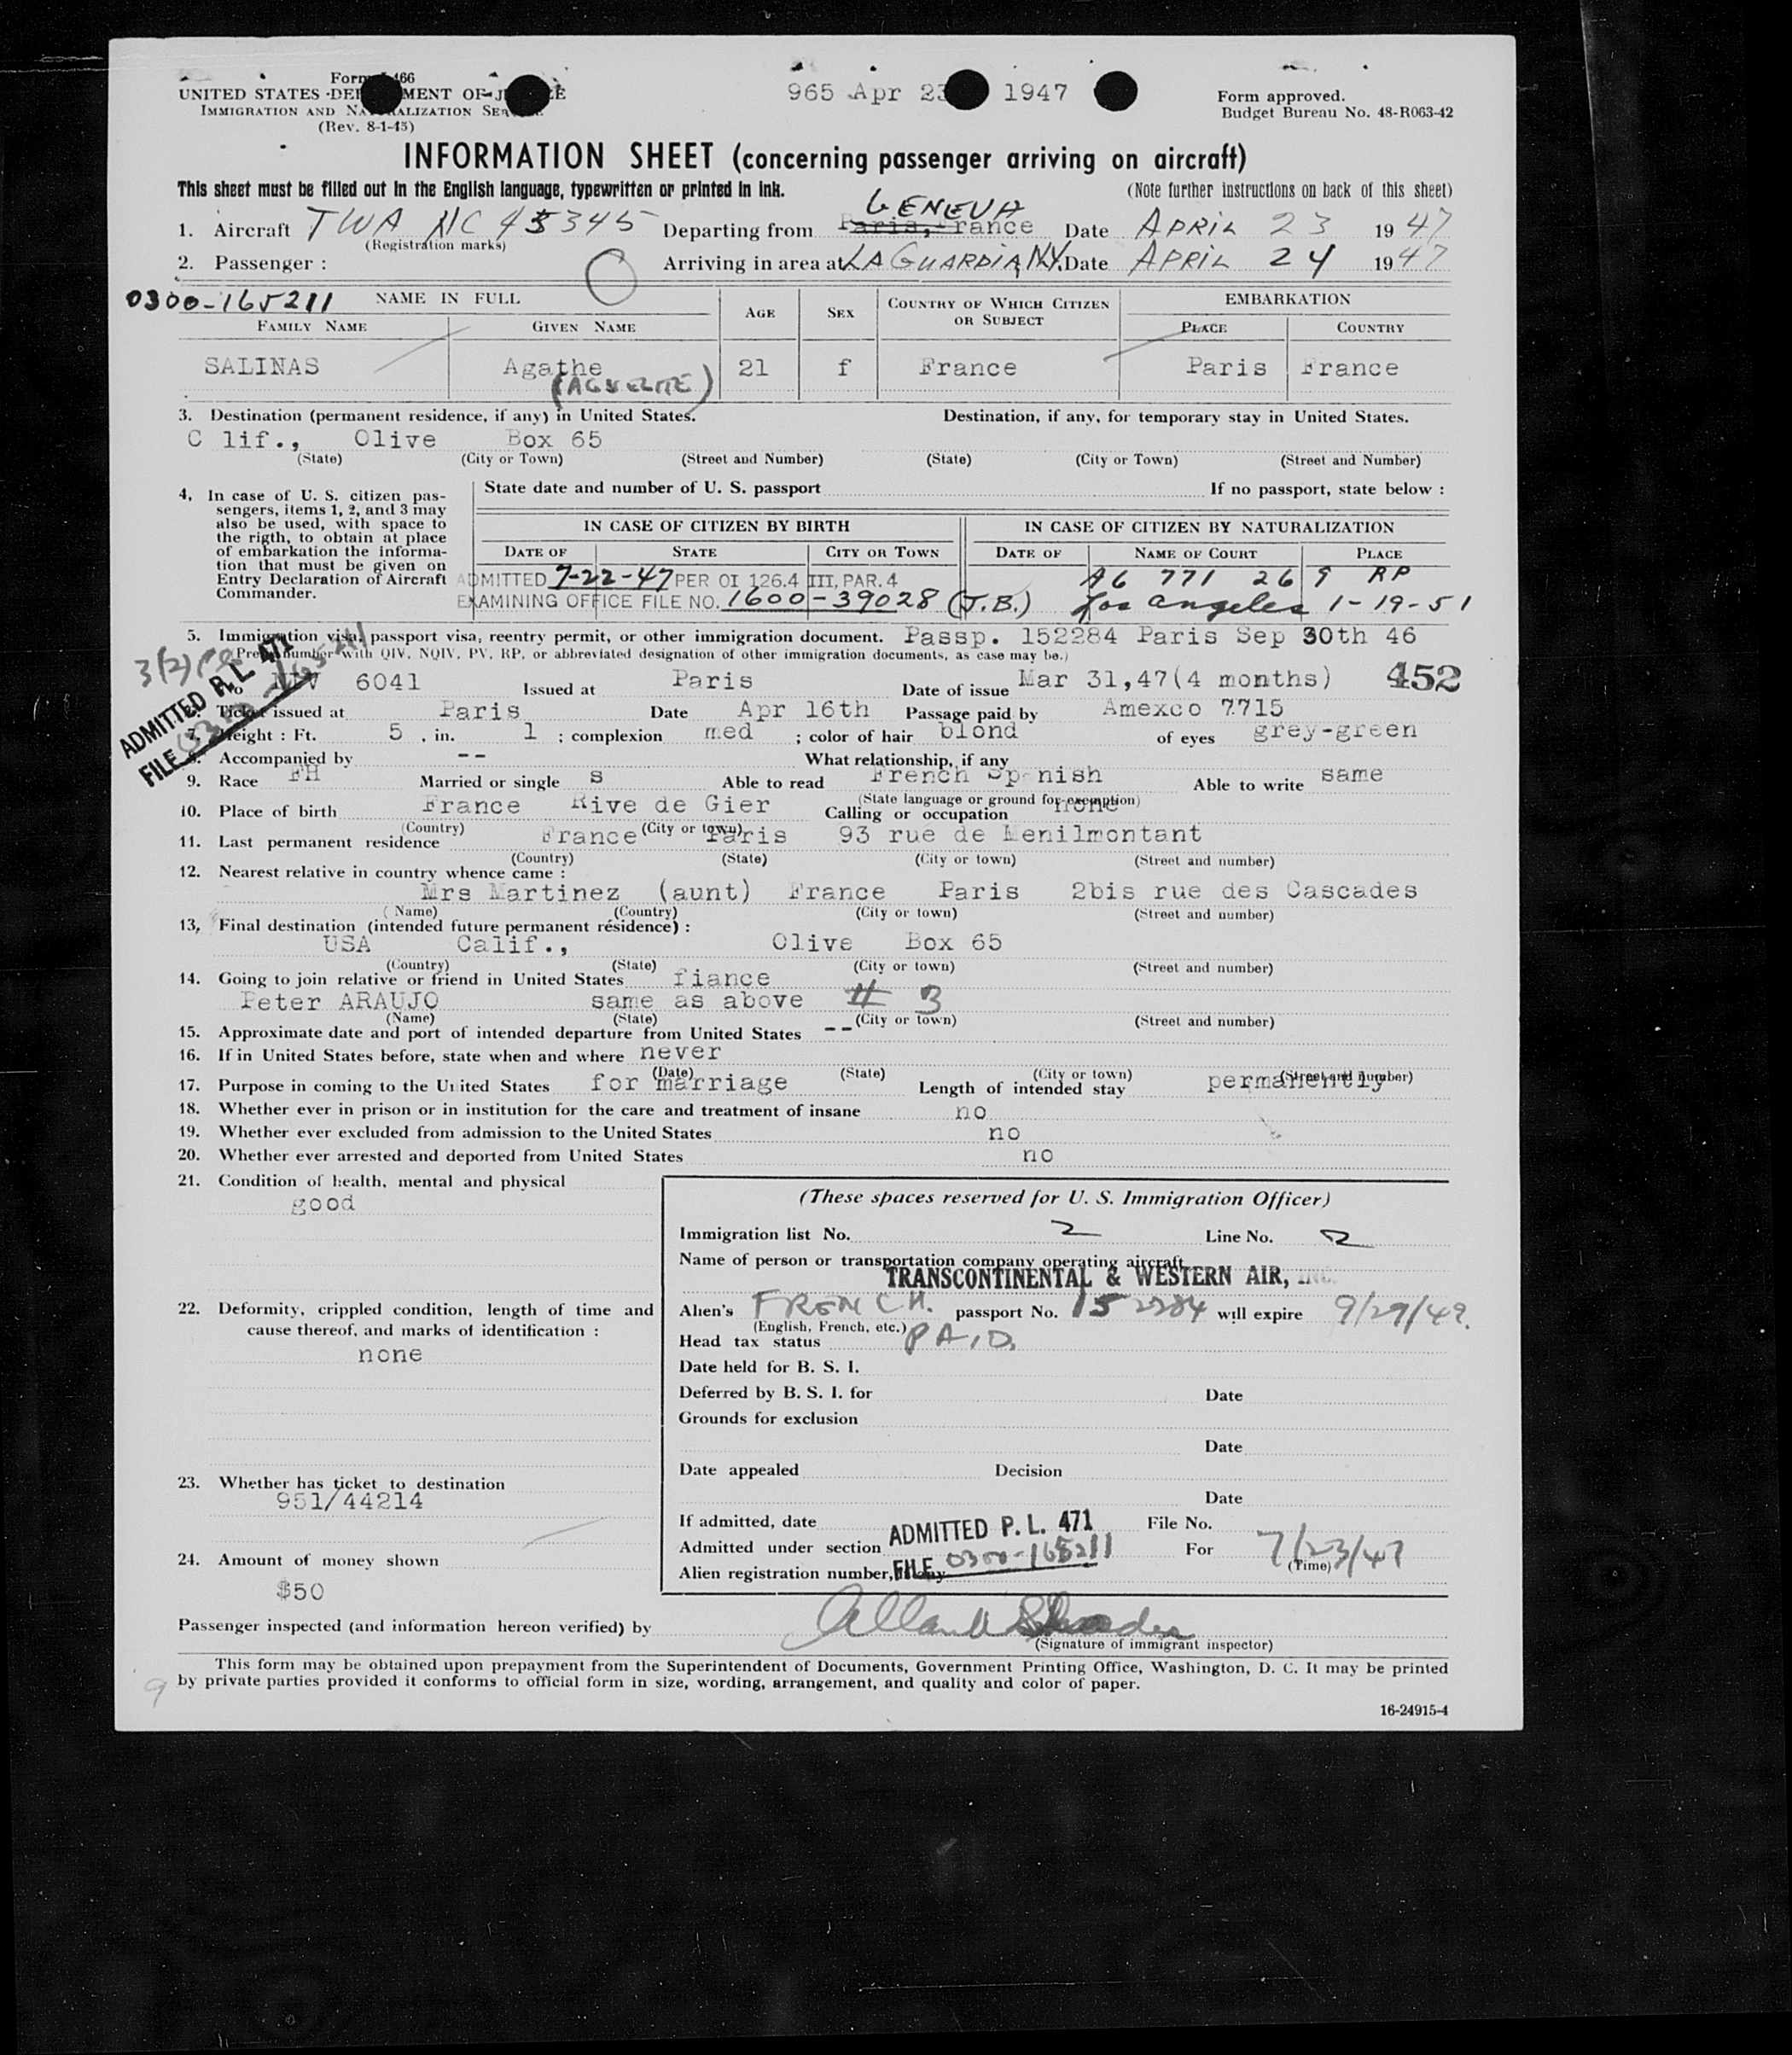 Form 466
965 Apr 23 1947
Form approved.
UNITED STATES DEPARTMENT OF JUSTICE
Budget Bureau No. 48-R063-42
IMMIGRATION AND NATURALIZATION SERVICE
(Rev. 8-1-45)
INFORMATION SHEET (concerning passenger arriving on aircraft)
This sheet must be filled out in the English language, typewritten or printed in ink. (Note further instructions on back of this sheet)
GENEVA
1. Aircraft TWA NC 45345 Departing from Paris, France Date APRIL 23 1947
(Registration marks)
2. Passenger : Arriving in area at LA GUARDIA, N.Y. Date APRIL 24 1947
0300-165211 NAME IN FULL AGE SEX COUNTRY OF WHICH CITIZEN OR SUBJECT EMBARKATION
FAMILY NAME GIVEN NAME PLACE COUNTRY
SALINAS Agathe 21 f France Paris France
3. Destination (permanent residence, if any) in United States. Destination, if any, for temporary stay in United States.
C lif., Olive Box 65
(State) (City or Town) (Street and Number) (State) (City or Town) (Street and Number)
4. In case of U. S. citizen pas-
sengers, items 1, 2, and 3 may
also be used, with space to
the rigth, to obtain at place
of embarkation the informa-
tion that must be given on
Entry Declaration of Aircraft
Commander.
State date and number of U. S. passport If no passport, state below :
IN CASE OF CITIZEN BY BIRTH IN CASE OF CITIZEN BY NATURALIZATION
DATE OF STATE CITY OR TOWN DATE OF NAME OF COURT PLACE
ADMITTED 7-22-47 PER OI 126.4 III, PAR. 4 A6 771 269 RP
EXAMINING OFFICE FILE NO. 1600-39028 (J.B.) Los Angeles 1-19-51
5. Immigration visa, passport visa, reentry permit, or other immigration document. Passp. 152284 Paris Sep 30th 46
(Prefix number with QIV, NQIV, PV, RP, or abbreviated designation of other immigration documents, as case may be.)
6041 Issued at Paris Date of issue Mar 31,47(4 months) 452
ADMITTED P. L. 471
FILE
6. Ticket issued at Paris Date Apr 16th Passage paid by Amexco 7715
7. Height : Ft. 5 , in. 1 ; complexion med ; color of hair blond of eyes grey-green
8. Accompanied by -- What relationship, if any
9. Race FH Married or single s Able to read French Sp nish Able to write same
(State language or ground for exemption)
10. Place of birth France Rive de Gier Calling or occupation none
(Country) (City or town)
11. Last permanent residence France Paris 93 rue de Menilmontant
(Country) (State) (City or town) (Street and number)
12. Nearest relative in country whence came :
Mrs Martinez (aunt) France Paris 2bis rue des Cascades
(Name) (Country) (City or town) (Street and number)
13, Final destination (intended future permanent résidence) :
USA Calif., Olive Box 65
(Country) (State) (City or town) (Street and number)
14. Going to join relative or friend in United States fiance
Peter ARAUJO same as above # 3
(Name) (State) (City or town) (Street and number)
15. Approximate date and port of intended departure from United States --
16. If in United States before, state when and where never
(Date) (State) (City or town) (Street and number)
17. Purpose in coming to the United States for marriage Length of intended stay permanently
18. Whether ever in prison or in institution for the care and treatment of insane no
19. Whether ever excluded from admission to the United States no
20. Whether ever arrested and deported from United States no
21. Condition of health, mental and physical
good
22. Deformity, crippled condition, length of time and
cause thereof, and marks of identification :
none
23. Whether has ticket to destination
951/44214
24. Amount of money shown
$50
(These spaces reserved for U. S. Immigration Officer)
Immigration list No. 2 Line No. 2
Name of person or transportation company operating aircraft
TRANSCONTINENTAL & WESTERN AIR, INC.
Alien's FRENCH. passport No. 152284 will expire 9/29/49.
(English, French, etc.)
Head tax status PAID.
Date held for B. S. I.
Deferred by B. S. I. for Date
Grounds for exclusion
Date
Date appealed Decision
Date
If admitted, date ADMITTED P. L. 471 File No.
Admitted under section For 7/23/47
FILE 0300-165211 (Time)
Alien registration number, if any
Passenger inspected (and information hereon verified) by
(Signature of immigrant inspector)
This form may be obtained upon prepayment from the Superintendent of Documents, Government Printing Office, Washington, D. C. It may be printed
by private parties provided it conforms to official form in size, wording, arrangement, and quality and color of paper.
9
16-24915-4